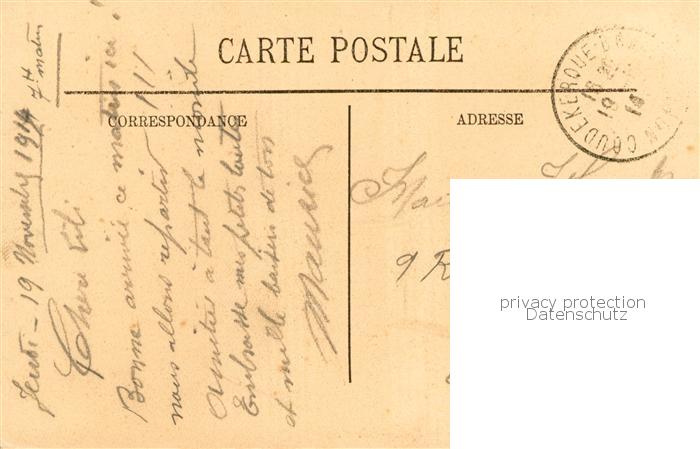 CARTE POSTALE
CORRESPONDANCE
ADRESSE
COUDEKERQUE-BRANCHE
19
14
Jeudi - 19 Novembre 1914
7H matin
Chère Lili
Bonne arrivée ce matin ici !
nous allons repartir !!!
Amitiés à tout le monde
Embrasse mes petits loulous
et mille baisers de ton
Maurice
9 R
privacy protection
Datenschutz